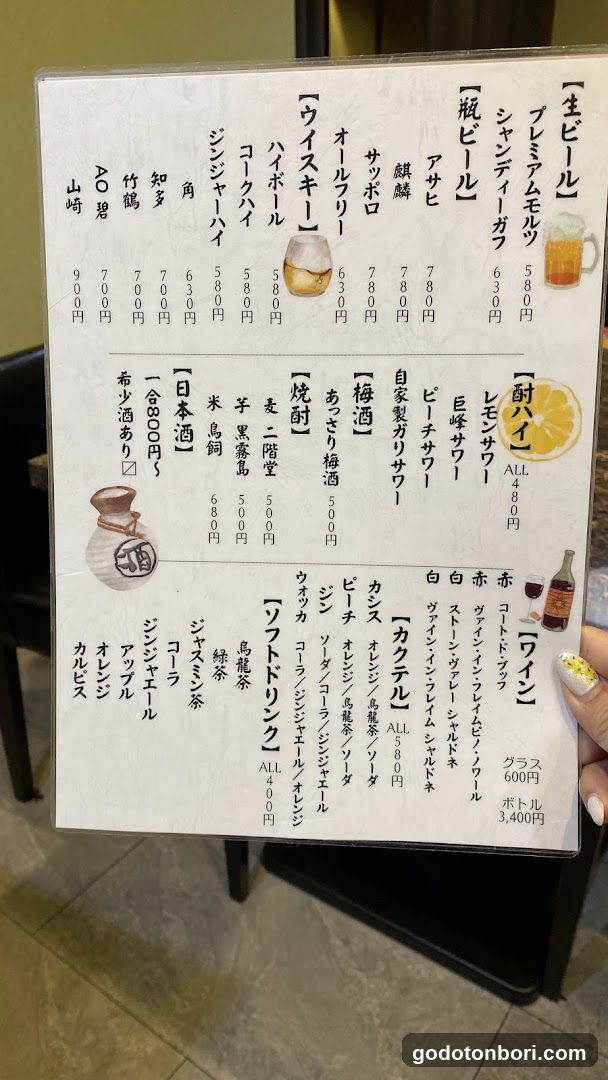 【生ビール】
プレミアムモルツ 580円
シャンディーガフ 630円
【瓶ビール】
アサヒ 780円
麒麟 780円
サッポロ 780円
オールフリー 630円
【ウイスキー】
ハイボール 580円
コークハイ 580円
ジンジャーハイ 580円
角 630円
知多 700円
竹鶴 700円
AO 碧 700円
山崎 900円
【酎ハイ】 ALL 480円
レモンサワー
巨峰サワー
ピーチサワー
自家製ガリサワー
【梅酒】
あっさり梅酒 500円
【焼酎】
麦 二階堂 500円
芋 黒霧島 500円
米 鳥飼 680円
【日本酒】
一合800円〜
希少酒あり〼
酒
【ワイン】 グラス 600円 ボトル 3,400円
赤 コート・ド・ブッフ
赤 ヴァイン・イン・フレイムピノ・ノワール
白 ストーン・ヴァレー シャルドネ
白 ヴァイン・イン・フレイム シャルドネ
【カクテル】 ALL 580円
カシス オレンジ／烏龍茶／ソーダ
ピーチ オレンジ／烏龍茶／ソーダ
ジン ソーダ／コーラ／ジンジャエール
ウォッカ コーラ／ジンジャエール／オレンジ
【ソフトドリンク】 ALL 400円
烏龍茶
緑茶
ジャスミン茶
コーラ
ジンジャエール
アップル
オレンジ
カルピス
godotonbori.com